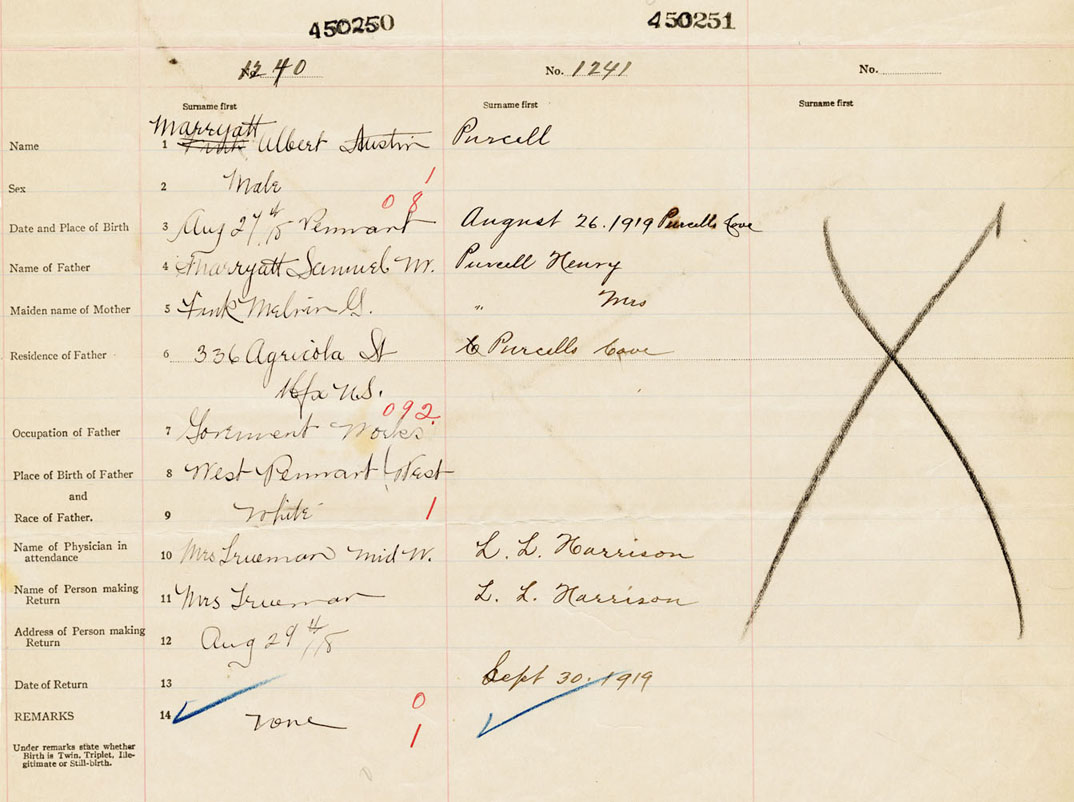 450250 450251
No. 1240 No. 1241 No.
Surname first Surname first Surname first
Marryatt
Name 1 Albert Austin Purcell
Sex 2 Male 1
0 8
Date and Place of Birth 3 Aug 27th Pennant August 26. 1919 Purcells Cove
Name of Father 4 Marryatt Samuel W. Purcell Henry
Maiden name of Mother 5 Fink Melvin G. " Mrs
Residence of Father 6 336 Agricola St Purcells Cove
Hfx N.S.
092
Occupation of Father 7 Goverment Works
Place of Birth of Father 8 West Pennant West
and
Race of Father. 9 White 1
Name of Physician in 10 Mrs Trueman mid W. L. L. Harrison
attendance
Name of Person making 11 Mrs Trueman L. L. Harrison
Return
Address of Person making 12 Aug 29
Return
Date of Return 13 Sept 30. 1919
0
REMARKS 14 none
1
Under remarks state whether
Birth is Twin, Triplet, Ille-
gitimate or Still-birth.